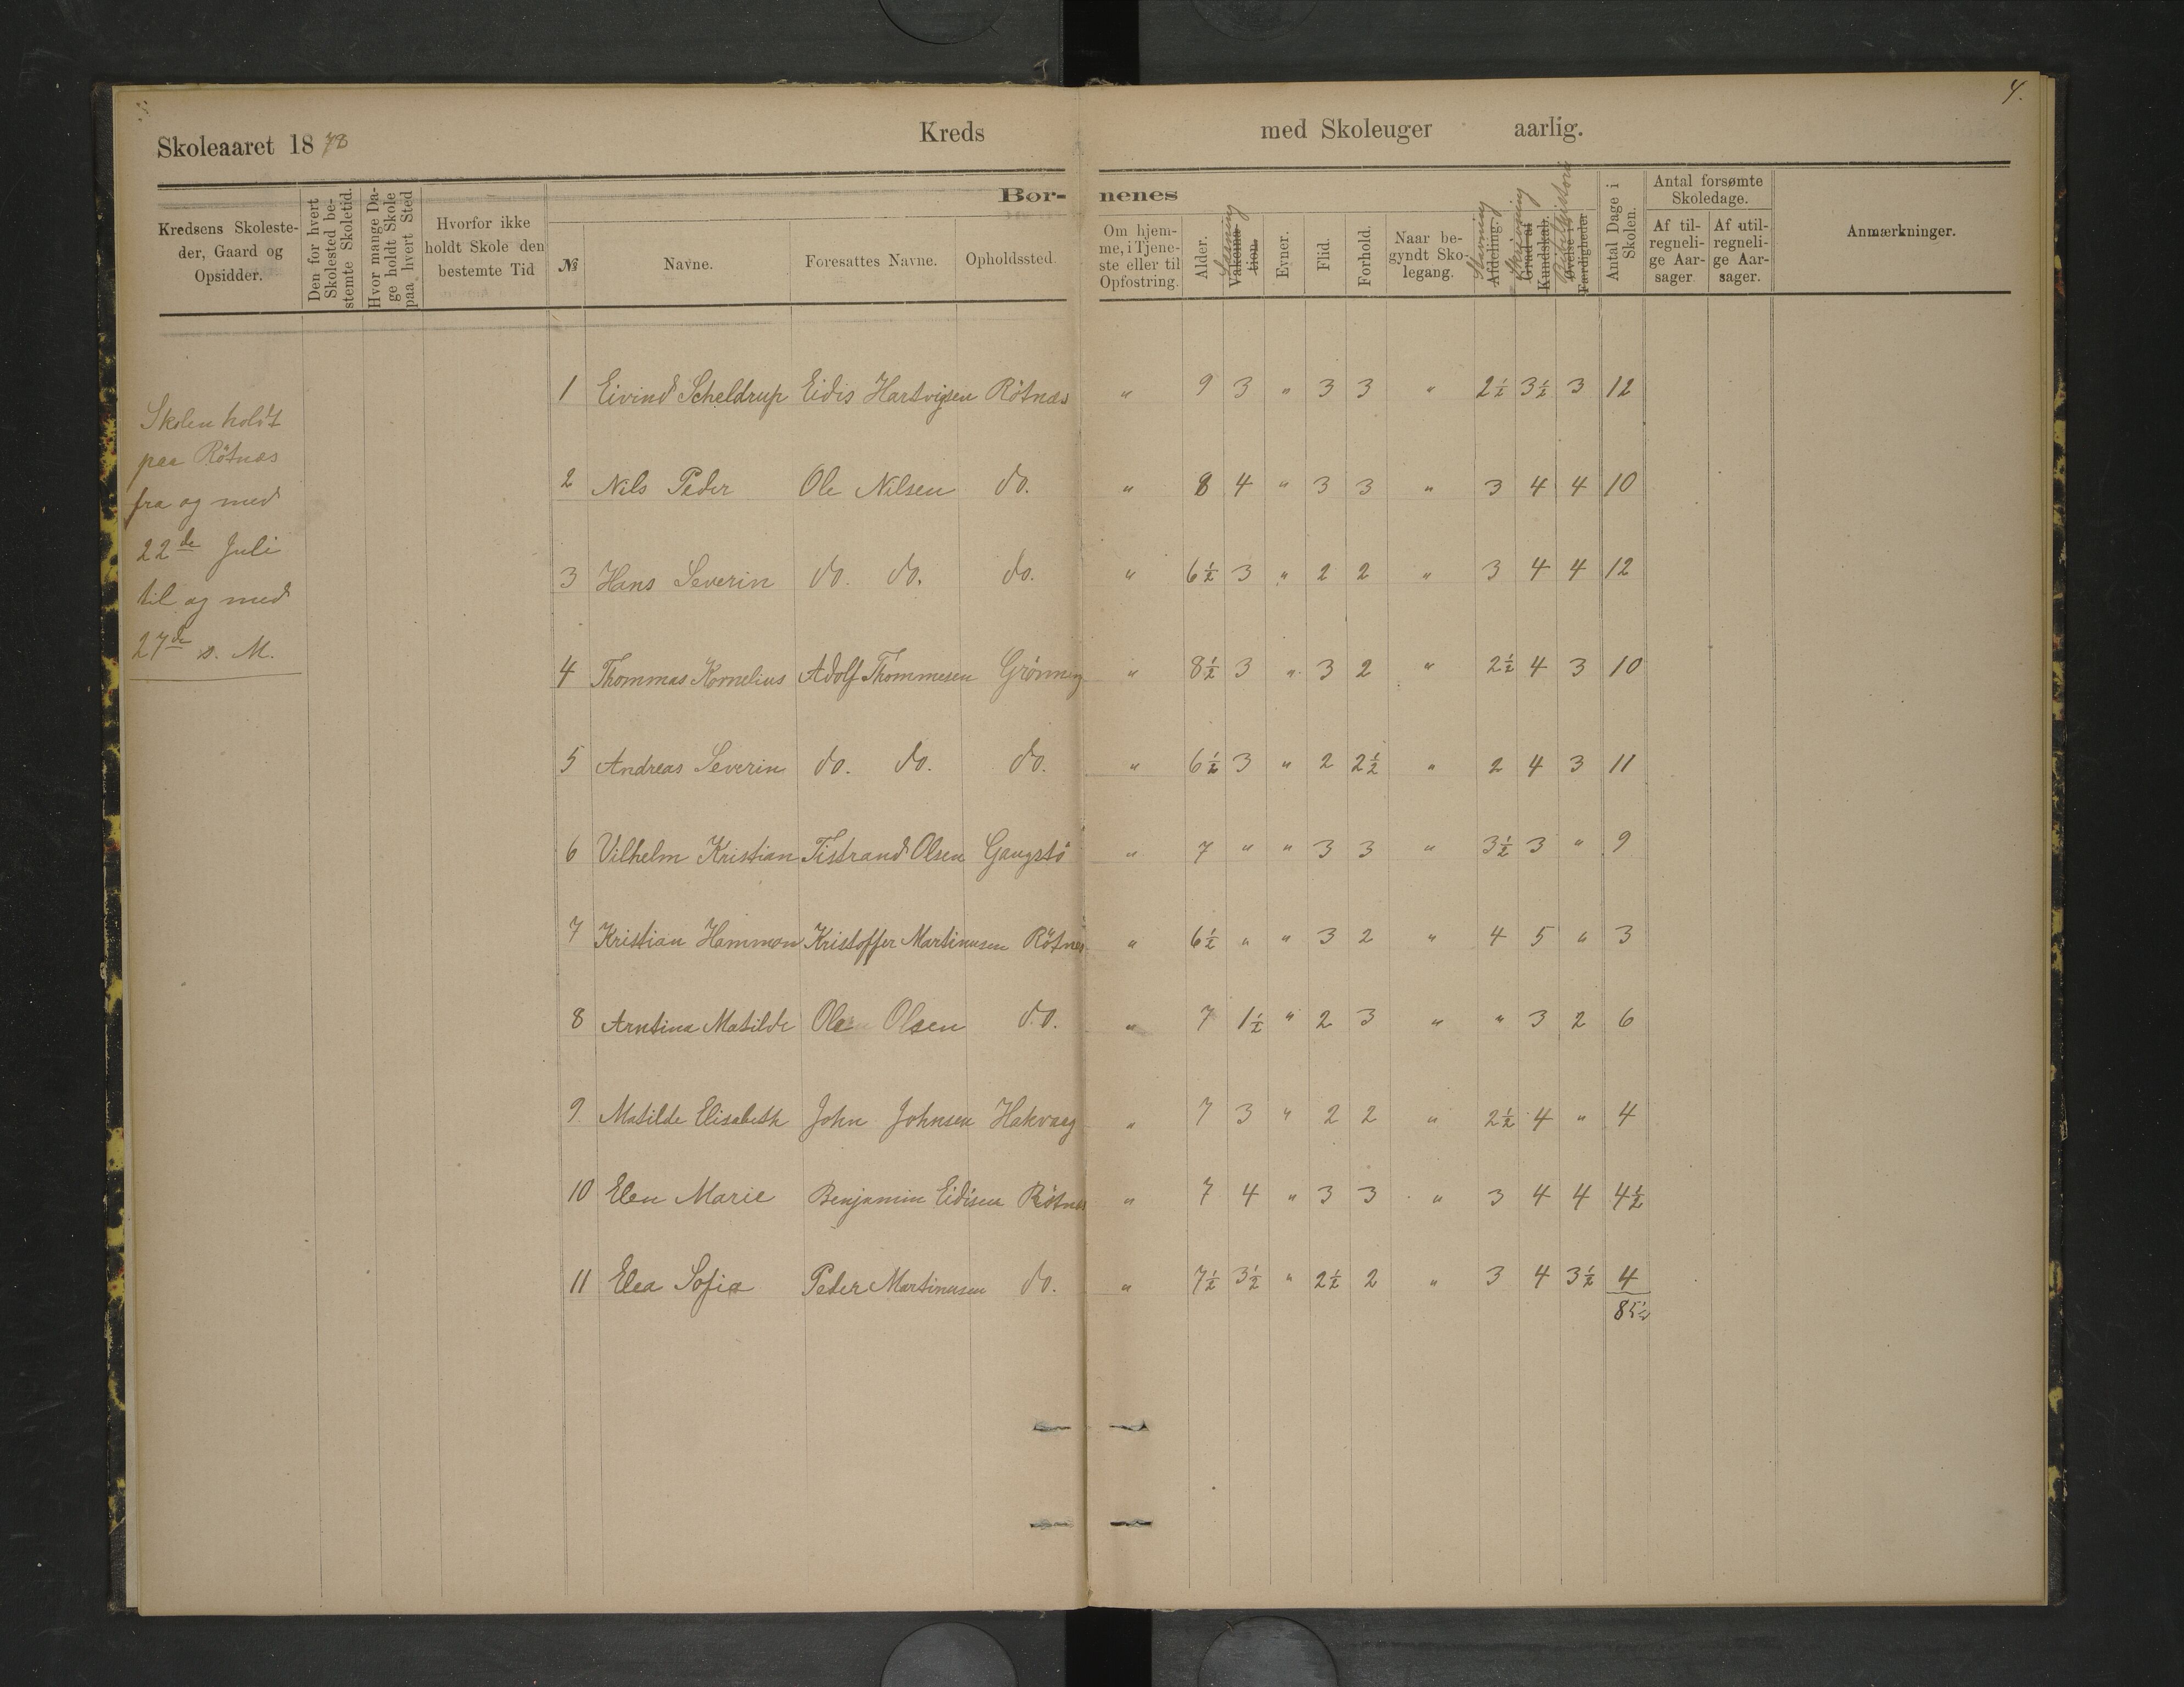 4.
Skoleaaret 1878 Kreds med Skoleuger aarlig.
Bør- nenes
Kredsens Skoleste-
der, Gaard og
Opsidder.
Den for hvert
Skolested be-
stemte Skoletid.
Hvor mange Da-
ge holdt Skole
paa hvert Sted
Hvorfor ikke
holdt Skole den
bestemte Tid
№
Navne.
Foresattes Navne.
Opholdssted.
Om hjem-
me, i Tjene-
ste eller til
Opfostring.
Alder.
Læsning
Vakcina-
tion.
Evner.
Flid.
Forhold.
Naar be-
gyndt Sko-
legang.
Stavning
Afdeling.
Skrivning
Grad af
Kundskab.
Bibelhistorie
Øvelse i
Færdigheder
Antal Dage i
Skolen.
Antal forsømte
Skoledage.
Af til-
regneli-
ge Aar-
sager.
Af util-
regneli-
ge Aar-
sager.
Anmærkninger.
Skolen holdt
paa Rötnæs
fra og med
22de Juli
til og med
27de s. M.
1 Eivind Scheldrup Eidis Hartvigsen Rötnæs " 9 3 " 3 3 " 2½ 3½ 3 12
2 Nils Peder Ole Nilsen do. " 8 4 " 3 3 " 3 4 4 10
3 Hans Severin do. do. do. " 6½ 3 " 2 2 " 3 4 4 12
4 Thommas Kornelius Adolf Thommesen Grönning " 8½ 3 " 3 2 " 2½ 4 3 10
5 Andreas Severin do. do. do. " 6½ 3 " 2 2½ " 2 4 3 11
6 Vilhelm Kristian Tistrand Olsen Gangstö " 7 " " 3 3 " 3½ 3 " 9
7 Kristian Hammon Kristoffer Martinusen Rötnæs " 6½ " " 3 2 " 4 5 " 3
8 Arntina Matilde Ole Olsen do. " 7 1½ " 2 3 " " 3 2 6
9 Matilde Elisabeth John Johnsen Hakvaag " 7 3 " 2 2 " 2½ 4 " 4
10 Elen Marie Benjamin Eidisen Rötnæs " 7 4 " 3 3 " 3 4 4 4½
11 Elea Sofia Peder Martinusen do. " 7½ 3½ " 2½ 2 " 3 4 3½ 4
85½